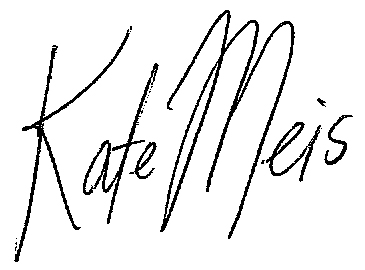 Kate Meis